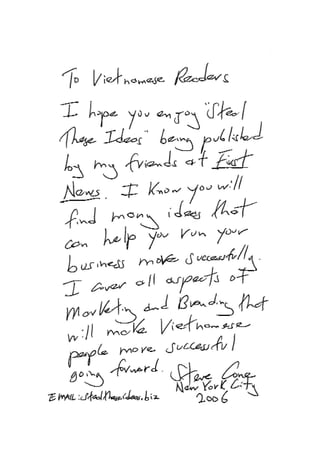 To Vietnamese Readers
I hope you enjoy "Steal
These Ideas" being published
by my friends at First
News. I know you will
find many ideas that
can help you run your
business more successfully.
I cover all aspects of
Marketing and Branding that
will make Vietnamese
people more successful
going forward. Steve Cone
New York City
EMAIL: stealtheseideas.biz 2006